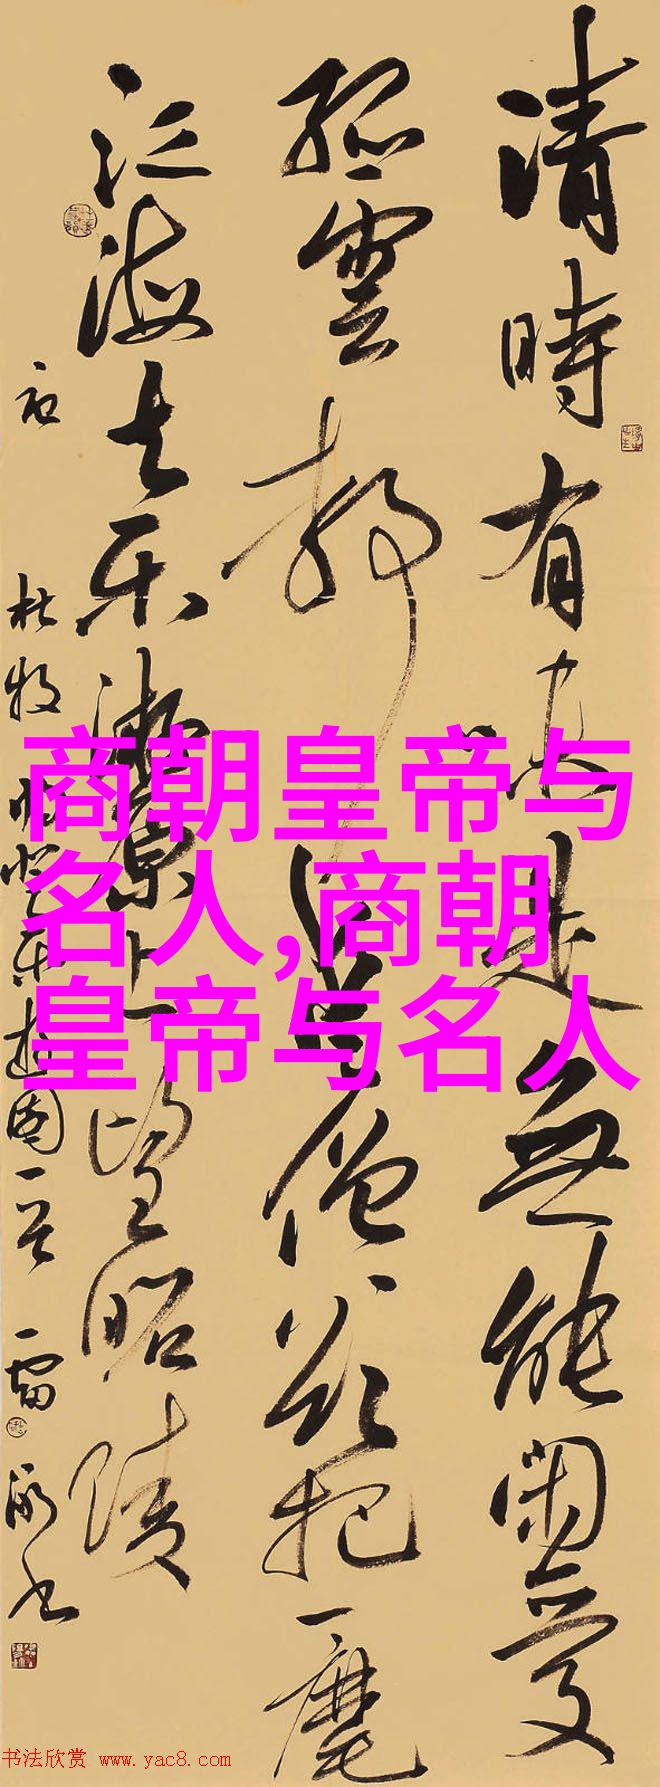 清時有味是無能閑愛
孤雲靜愛僧欲把一麾
江海去乐游原上望昭陵
杜牧
商朝皇帝与
名人,商朝
皇帝与名人
书法欣赏 www.yac8.com